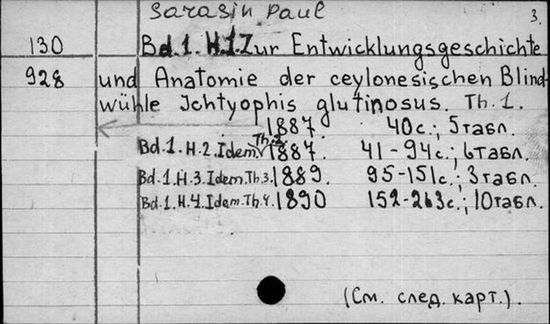 Sarasin Paul
3.
130 Bd. 1. H.1. Zur Entwicklungsgeschichte
928 und Anatomie der ceylonesischen Blind-
wühle Ichtyophis glutinosus. Th. 1.
1887. 40c.; 5табл.
Bd.1.H.2.Idem.Th.2.1887. 41-94c.; 6табл.
Bd.1.H.3.Idem.Th.3.1889. 95-151c.; 3табл.
Bd.1.H.4.Idem.Th.4.1890 152-263c.; 10табл.
(См. след. карт.).